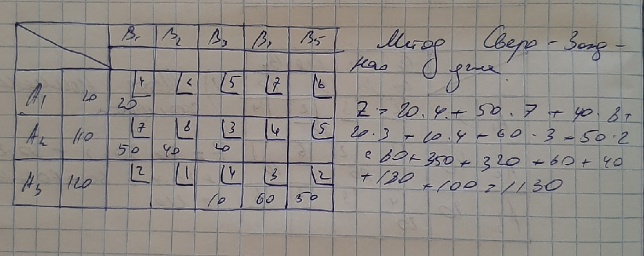 B₁ B₂ B₃ B₄ B₅
A₁ 20 4 6 5 7 6
20
A₂ 110 7 8 3 4 5
50 40 20
A₃ 120 2 1 4 3 2
10 60 50
Метод Северо-Запад-
ного угла.
Z = 20·4 + 50·7 + 40·8 +
20·3 + 10·4 + 60·3 + 50·2
= 80 + 350 + 320 + 60 + 40
+ 180 + 100 = 1130